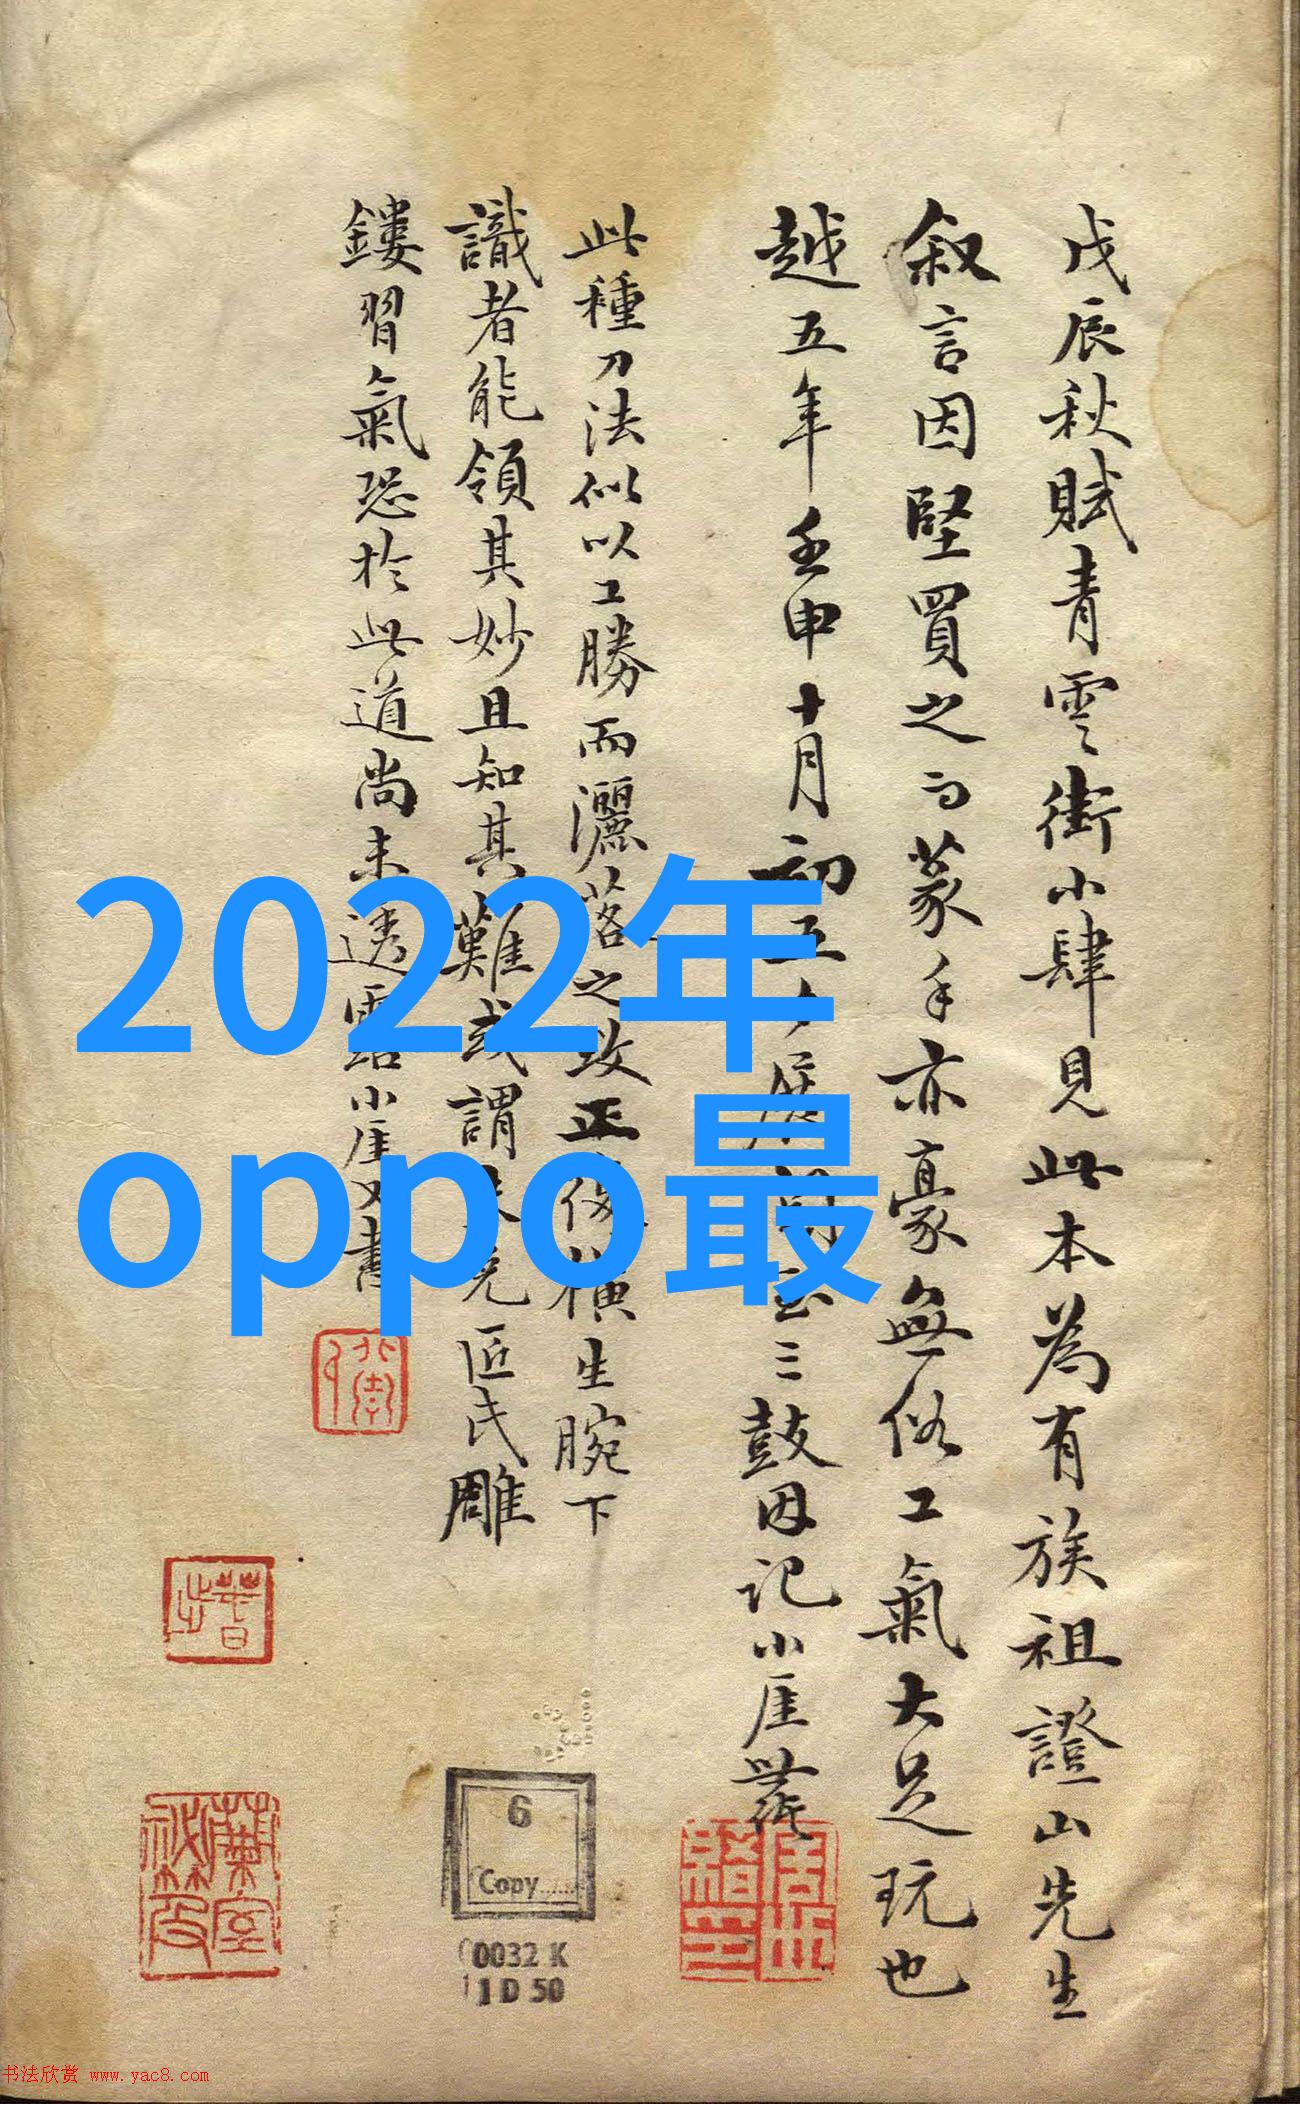 戊辰秋賦青雲街小肆見此本為有族祖證山先生
叙言因堅買之而篆手亦豪無俗工氣大足玩也
越五年壬申十月初五夕展閱至三鼓因記小厓
此種刀法似以工勝而灑落之致正復橫生腕下
識者能領其妙且知其難或謂未免匠氏雕
鏤習氣恐於此道尚未透露小厓又書
2022年
oppo最
6
Copy......
0032 K
1 D 50
书法欣赏 www.yac8.com